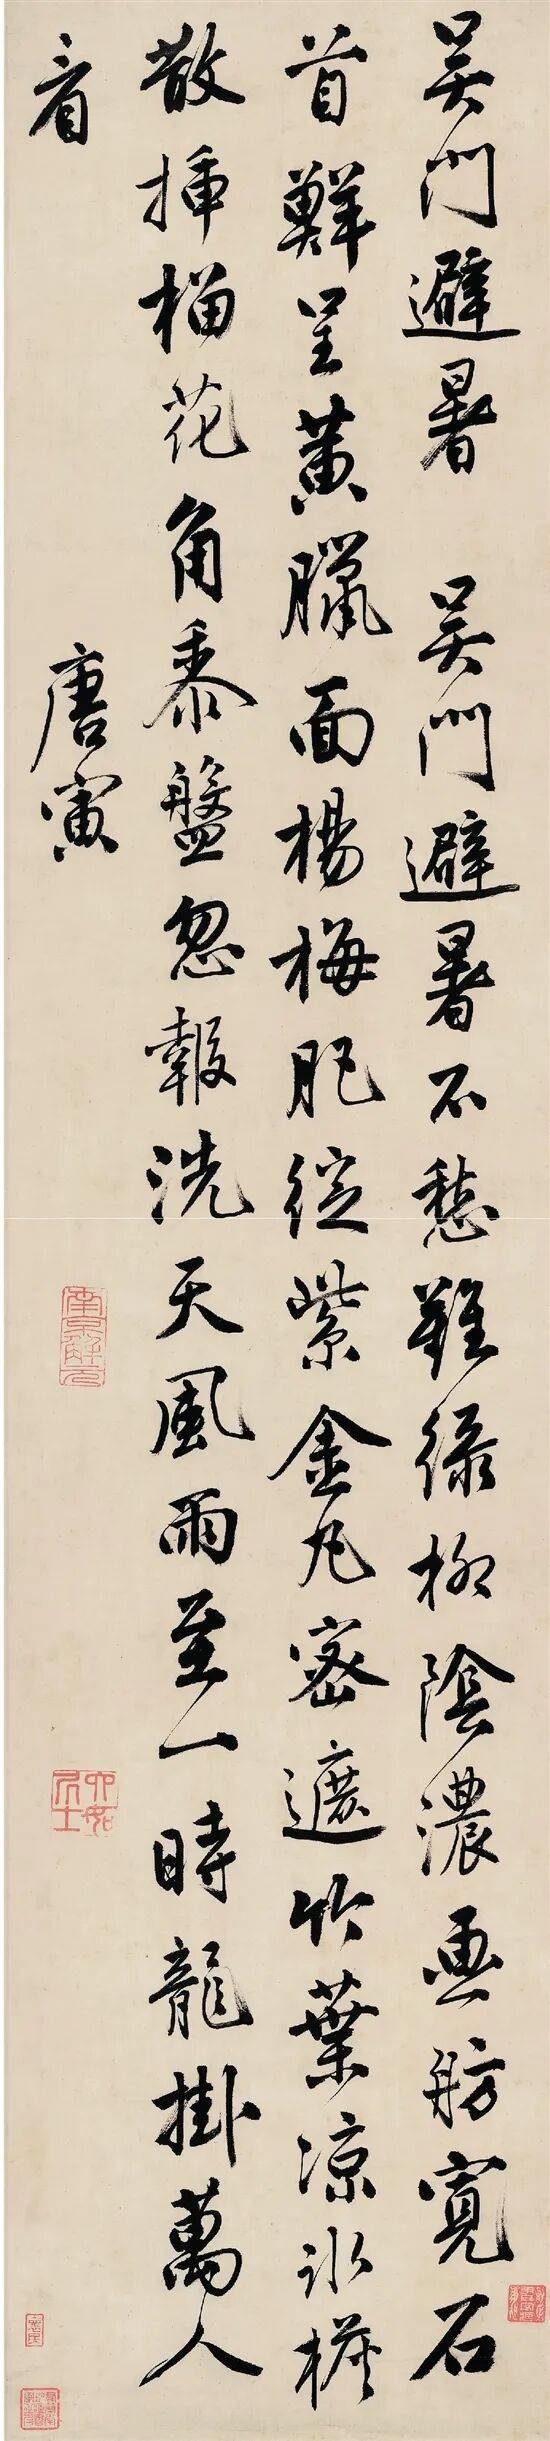 吳門避暑 吳門避暑不愁難綠柳陰濃画舫寬石
首鮮呈黃臘面楊梅肥綻紫金丸密遮竹葉凉冰
散插榴花角黍盤忽報洗天風雨至一時龍掛萬人
看
唐寅
南京解元
六如居士